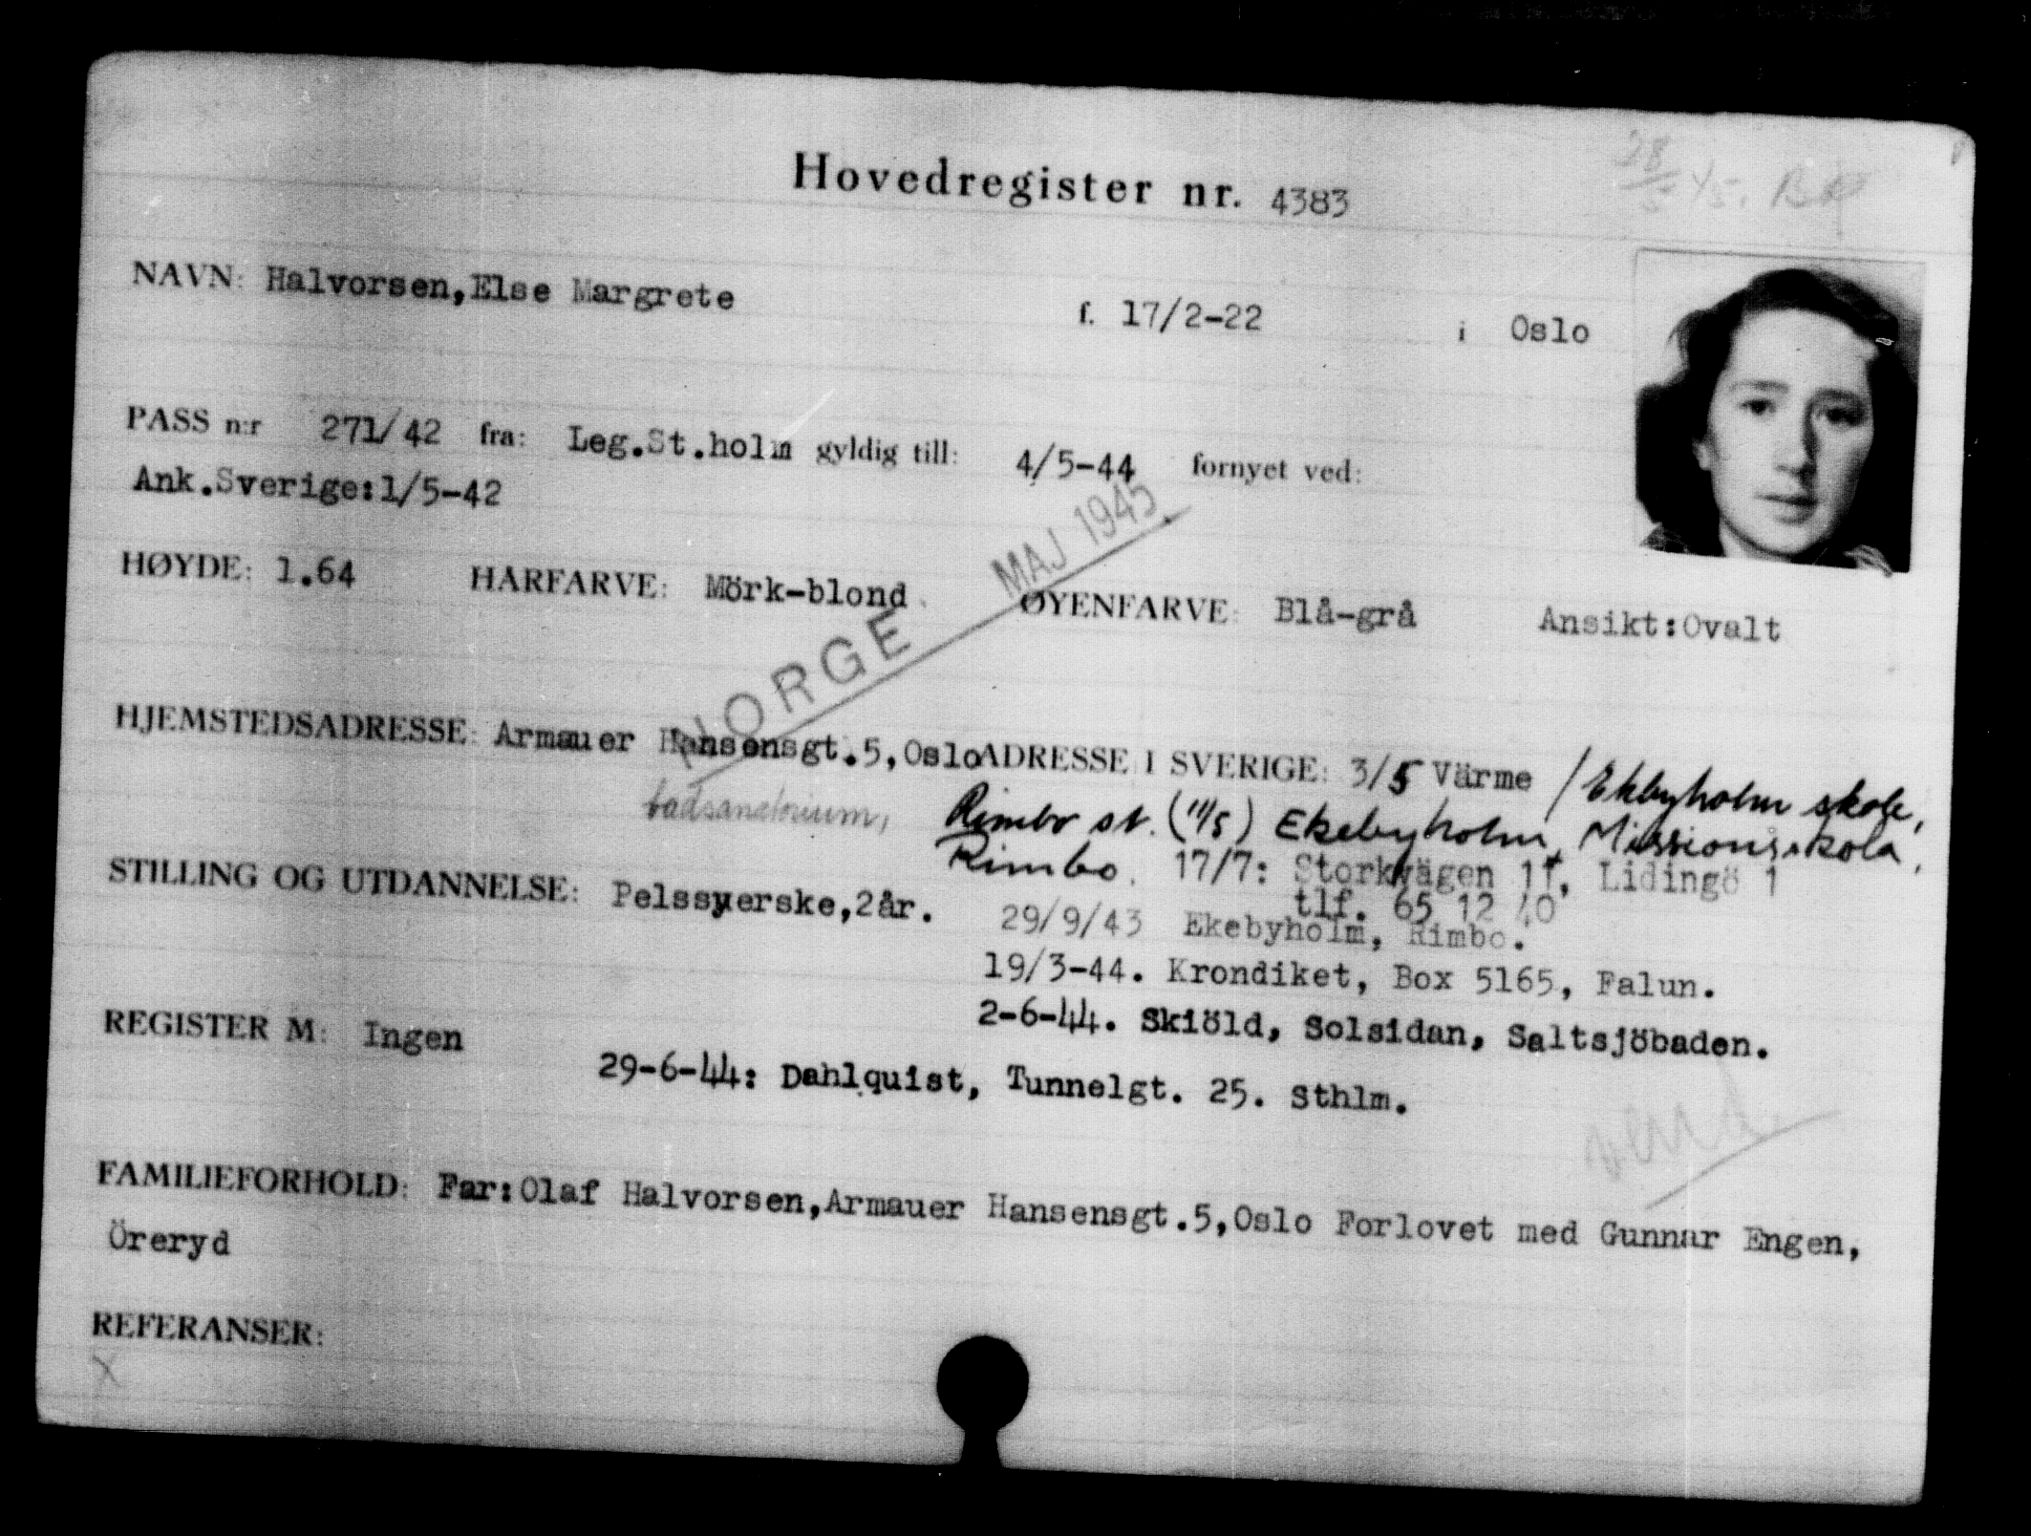 Hovedregister nr. 4383
28/5 45.
NAVN: Halvorsen,Else Margrete f. 17/2-22 i Oslo
PASS n:r 271/42 fra: Leg.St.holm gyldig till: 4/5-44 fornyet ved:
Ank.Sverige:1/5-42
HØYDE: 1.64 HÅRFARVE: Mörk-blond. ØYENFARVE: Blå-grå Ansikt:Ovalt
NORGE MAJ 1945.
HJEMSTEDSADRESSE: Armauer Hansensgt.5,Oslo ADRESSE I SVERIGE: 3/5 Värme /Ekbyholm skole,
badsanatorium, Rimbo st. (11/5) Ekebyholm, Missionsskola,
Rimbo. 17/7: Storkvägen 11, Lidingö 1
tlf. 65 12 40
STILLING OG UTDANNELSE: Pelssyerske,2år. 29/9/43 Ekebyholm, Rimbo.
19/3-44. Krondiket, Box 5165, Falun.
REGISTER M: Ingen 2-6-44. Skiöld, Solsidan, Saltsjöbaden.
29-6-44: Dahlquist, Tunnelgt. 25. Sthlm.
vend.
FAMILIEFORHOLD: Far:Olaf Halvorsen,Armauer Hansensgt.5,Oslo Forlovet med Gunnar Engen,
Öreryd
REFERANSER:
X